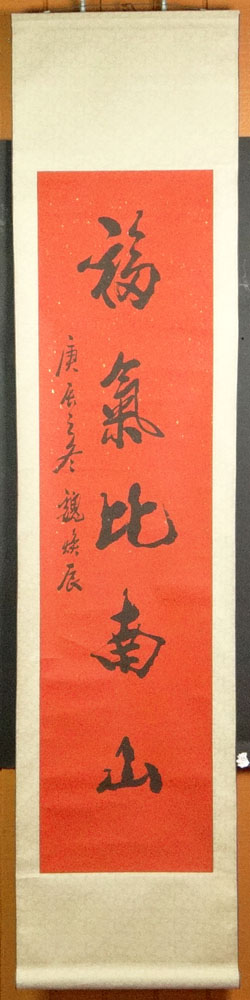 福氣比南山
庚辰之冬 魏煥辰